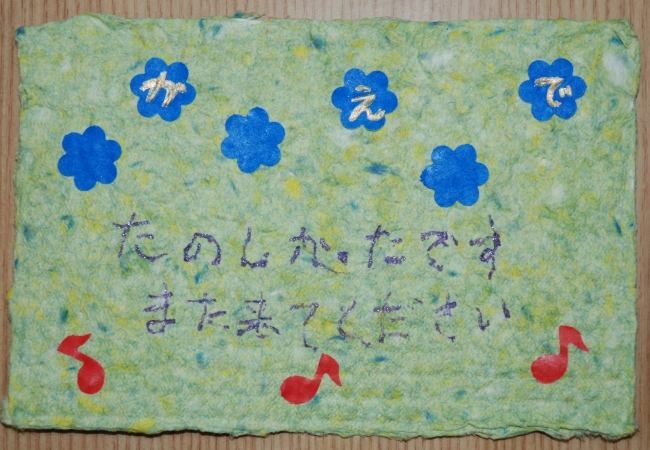 がえで
たのしかったです
また来てください